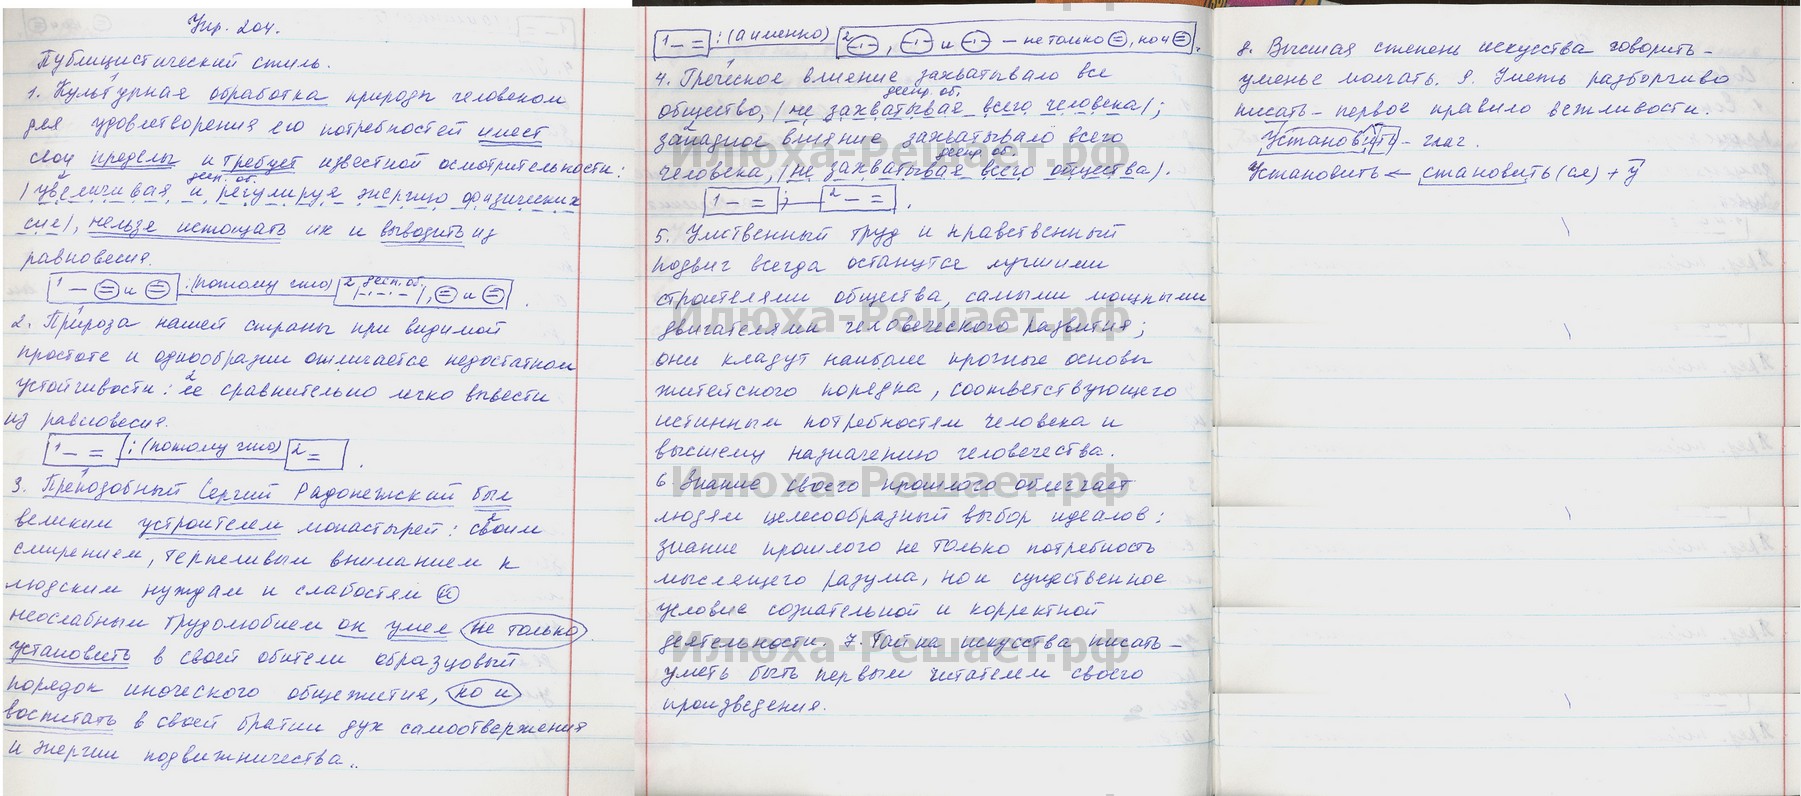 Упр. 204.
Публицистический стиль.
1. Культурная обработка природы человеком
для удовлетворения его потребностей имеет
свои пределы и требует известной осмотрительности:
дееп. об.
/увеличивая и регулируя энергию физических
сил/, нельзя истощать их и выводить из
равновесия.
1 – = и = : (потому что) 2 дееп. об. , = и = .
2. Природа нашей страны при видимой
простоте и однообразии отличается недостатком
устойчивости: ее сравнительно легко вывести
из равновесия.
1 – = : (потому что) 2 = .
3. Преподобный Сергий Радонежский был
великим устроителем монастырей: своим
смирением, терпеливым вниманием к
людским нуждам и слабостям и
неослабным трудолюбием он умел не только
установить в своей обители образцовый
порядок иноческого общежития, но и
воспитать в своей братии дух самоотвержения
и энергии подвижничества.
1 – = : (а именно) 2 , и – не только =, но и = .
4. Греческое влияние захватывало все
дееп. об.
общество, /не захватывая всего человека/;
западное влияние захватывало всего
дееп. об.
человека, /не захватывая всего общества/.
1 – = ; 2 – = .
5. Умственный труд и нравственный
подвиг всегда останутся лучшими
строителями общества, самыми мощными
двигателями человеческого развития;
они кладут наиболее прочные основы
житейского порядка, соответствующего
истинным потребностям человека и
высшему назначению человечества.
6. Знание своего прошлого облегчает
людям целесообразный выбор идеалов:
знание прошлого не только потребность
мыслящего разума, но и существенное
условие сознательной и корректной
деятельности. 7. Тайна искусства писать –
уметь быть первым читателем своего
произведения.
8. Высшая степень искусства говорить –
уменье молчать. 9. Уметь разборчиво
писать – первое правило вежливости.
Установить – глаг.
Установить ← становить(ся) + у
Илюха-Решает.рф
Илюха-Решает.рф
Илюха-Решает.рф
Илюха-Решает.рф